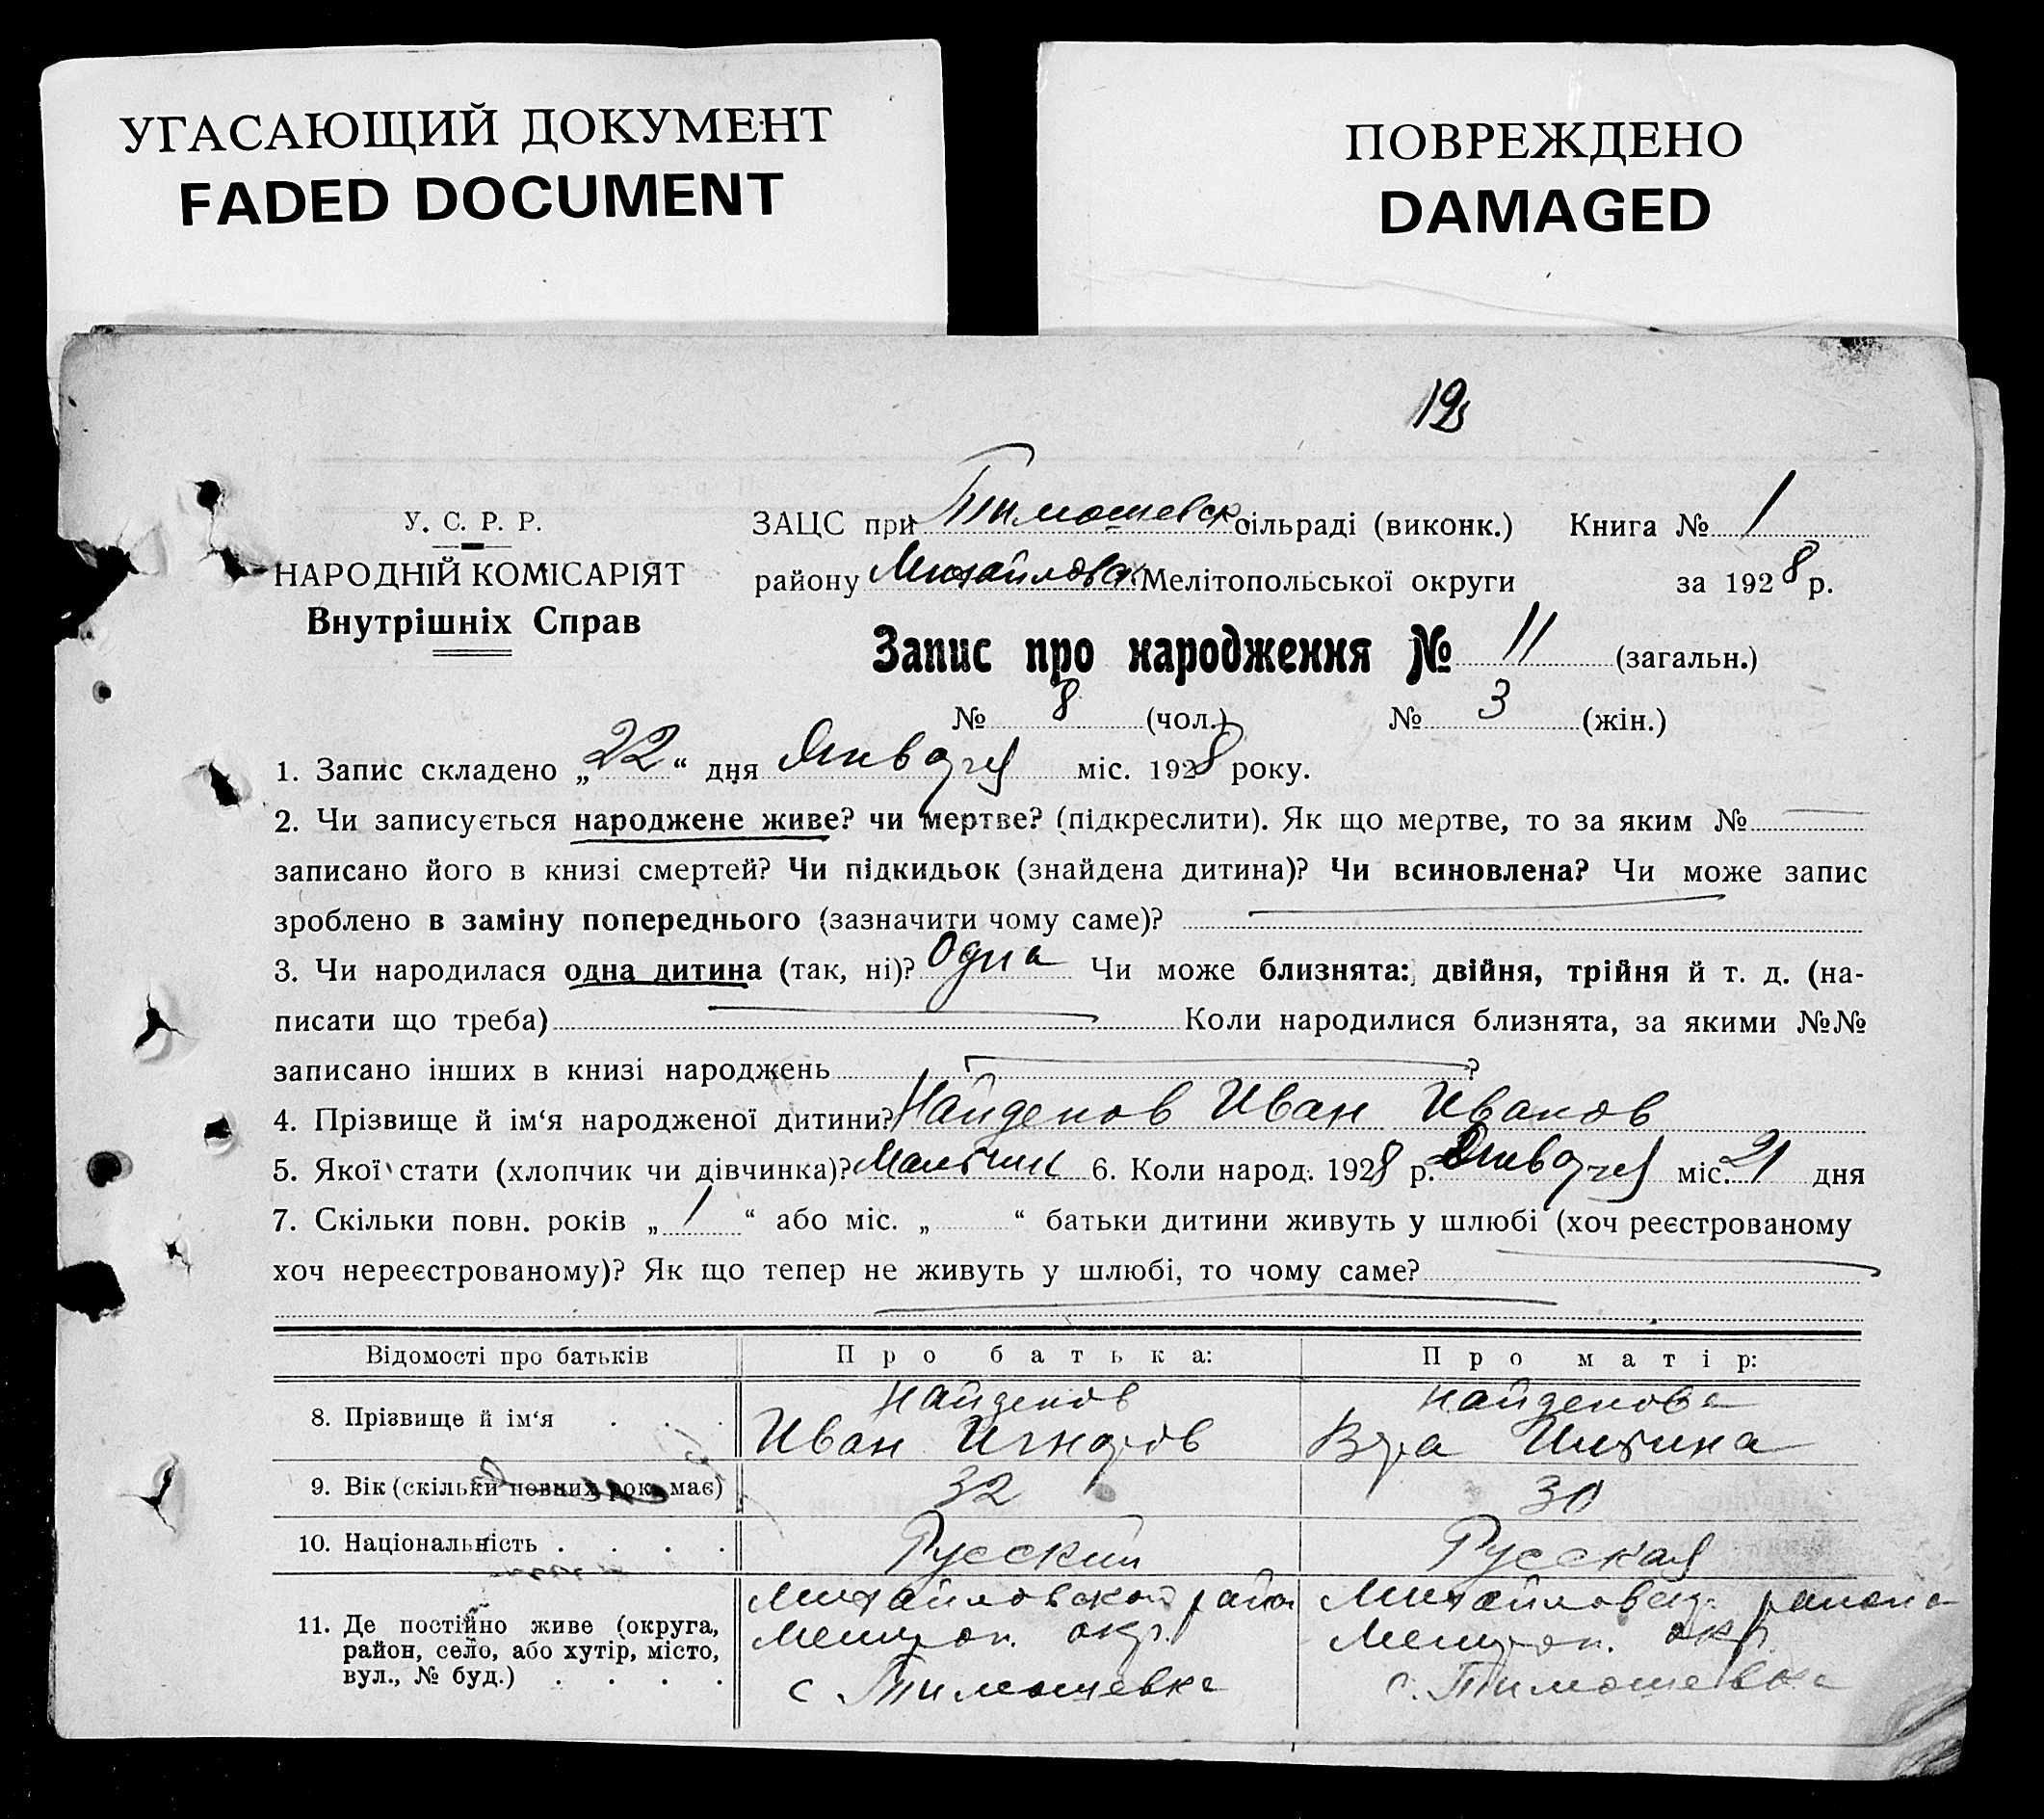 УГАСАЮЩИЙ ДОКУМЕНТ
FADED DOCUMENT
ПОВРЕЖДЕНО
DAMAGED
У. С. Р. Р.
НАРОДНІЙ КОМІСАРІЯТ
Внутрішніх Справ
ЗАЦС при Тимошевск. сільраді (виконк.) Книга № 1
району Михайловск. Мелітопольської округи за 1928 р.
Запис про народження № 11 (загальн.)
№ 8 (чол.) № 3 (жін.)
1. Запис складено „22“ дня Января міс. 1928 року.
2. Чи записується народжене живе? чи мертве? (підкреслити). Як що мертве, то за яким №
записано його в книзі смертей? Чи підкидьок (знайдена дитина)? Чи всиновлена? Чи може запис
зроблено в заміну попереднього (зазначити чому саме)?
3. Чи народилася одна дитина (так, ні)? Одна Чи може близнята: двійня, трійня й т. д. (на-
писати що треба) Коли народилися близнята, за якими №№
записано інших в книзі народжень ?
4. Прізвище й ім‘я народженої дитини? Найденов Иван Иванов
5. Якої стати (хлопчик чи дівчинка)? Мальчик 6. Коли народ. 1928 р. Января міс. 21 дня
7. Скільки повн. років „1“ або міс. „ “ батьки дитини живуть у шлюбі (хоч реєстрованому
хоч нереєстрованому)? Як що тепер не живуть у шлюбі, то чому саме?
Відомості про батьків Про батька: Про матір:
8. Прізвище й ім‘я . . . Найденов Найденова
Иван Вера
9. Вік (скільки повних рок. має) 32 30
10. Національність . . . . Русский Русская
11. Де постійно живе (округа,
район, село, або хутір, місто,
вул., № буд.) . . . .
Михайловской район Михайловск. района
Мелитоп. окр. Мелитоп. окр.
с. Тимошевка с. Тимошевка